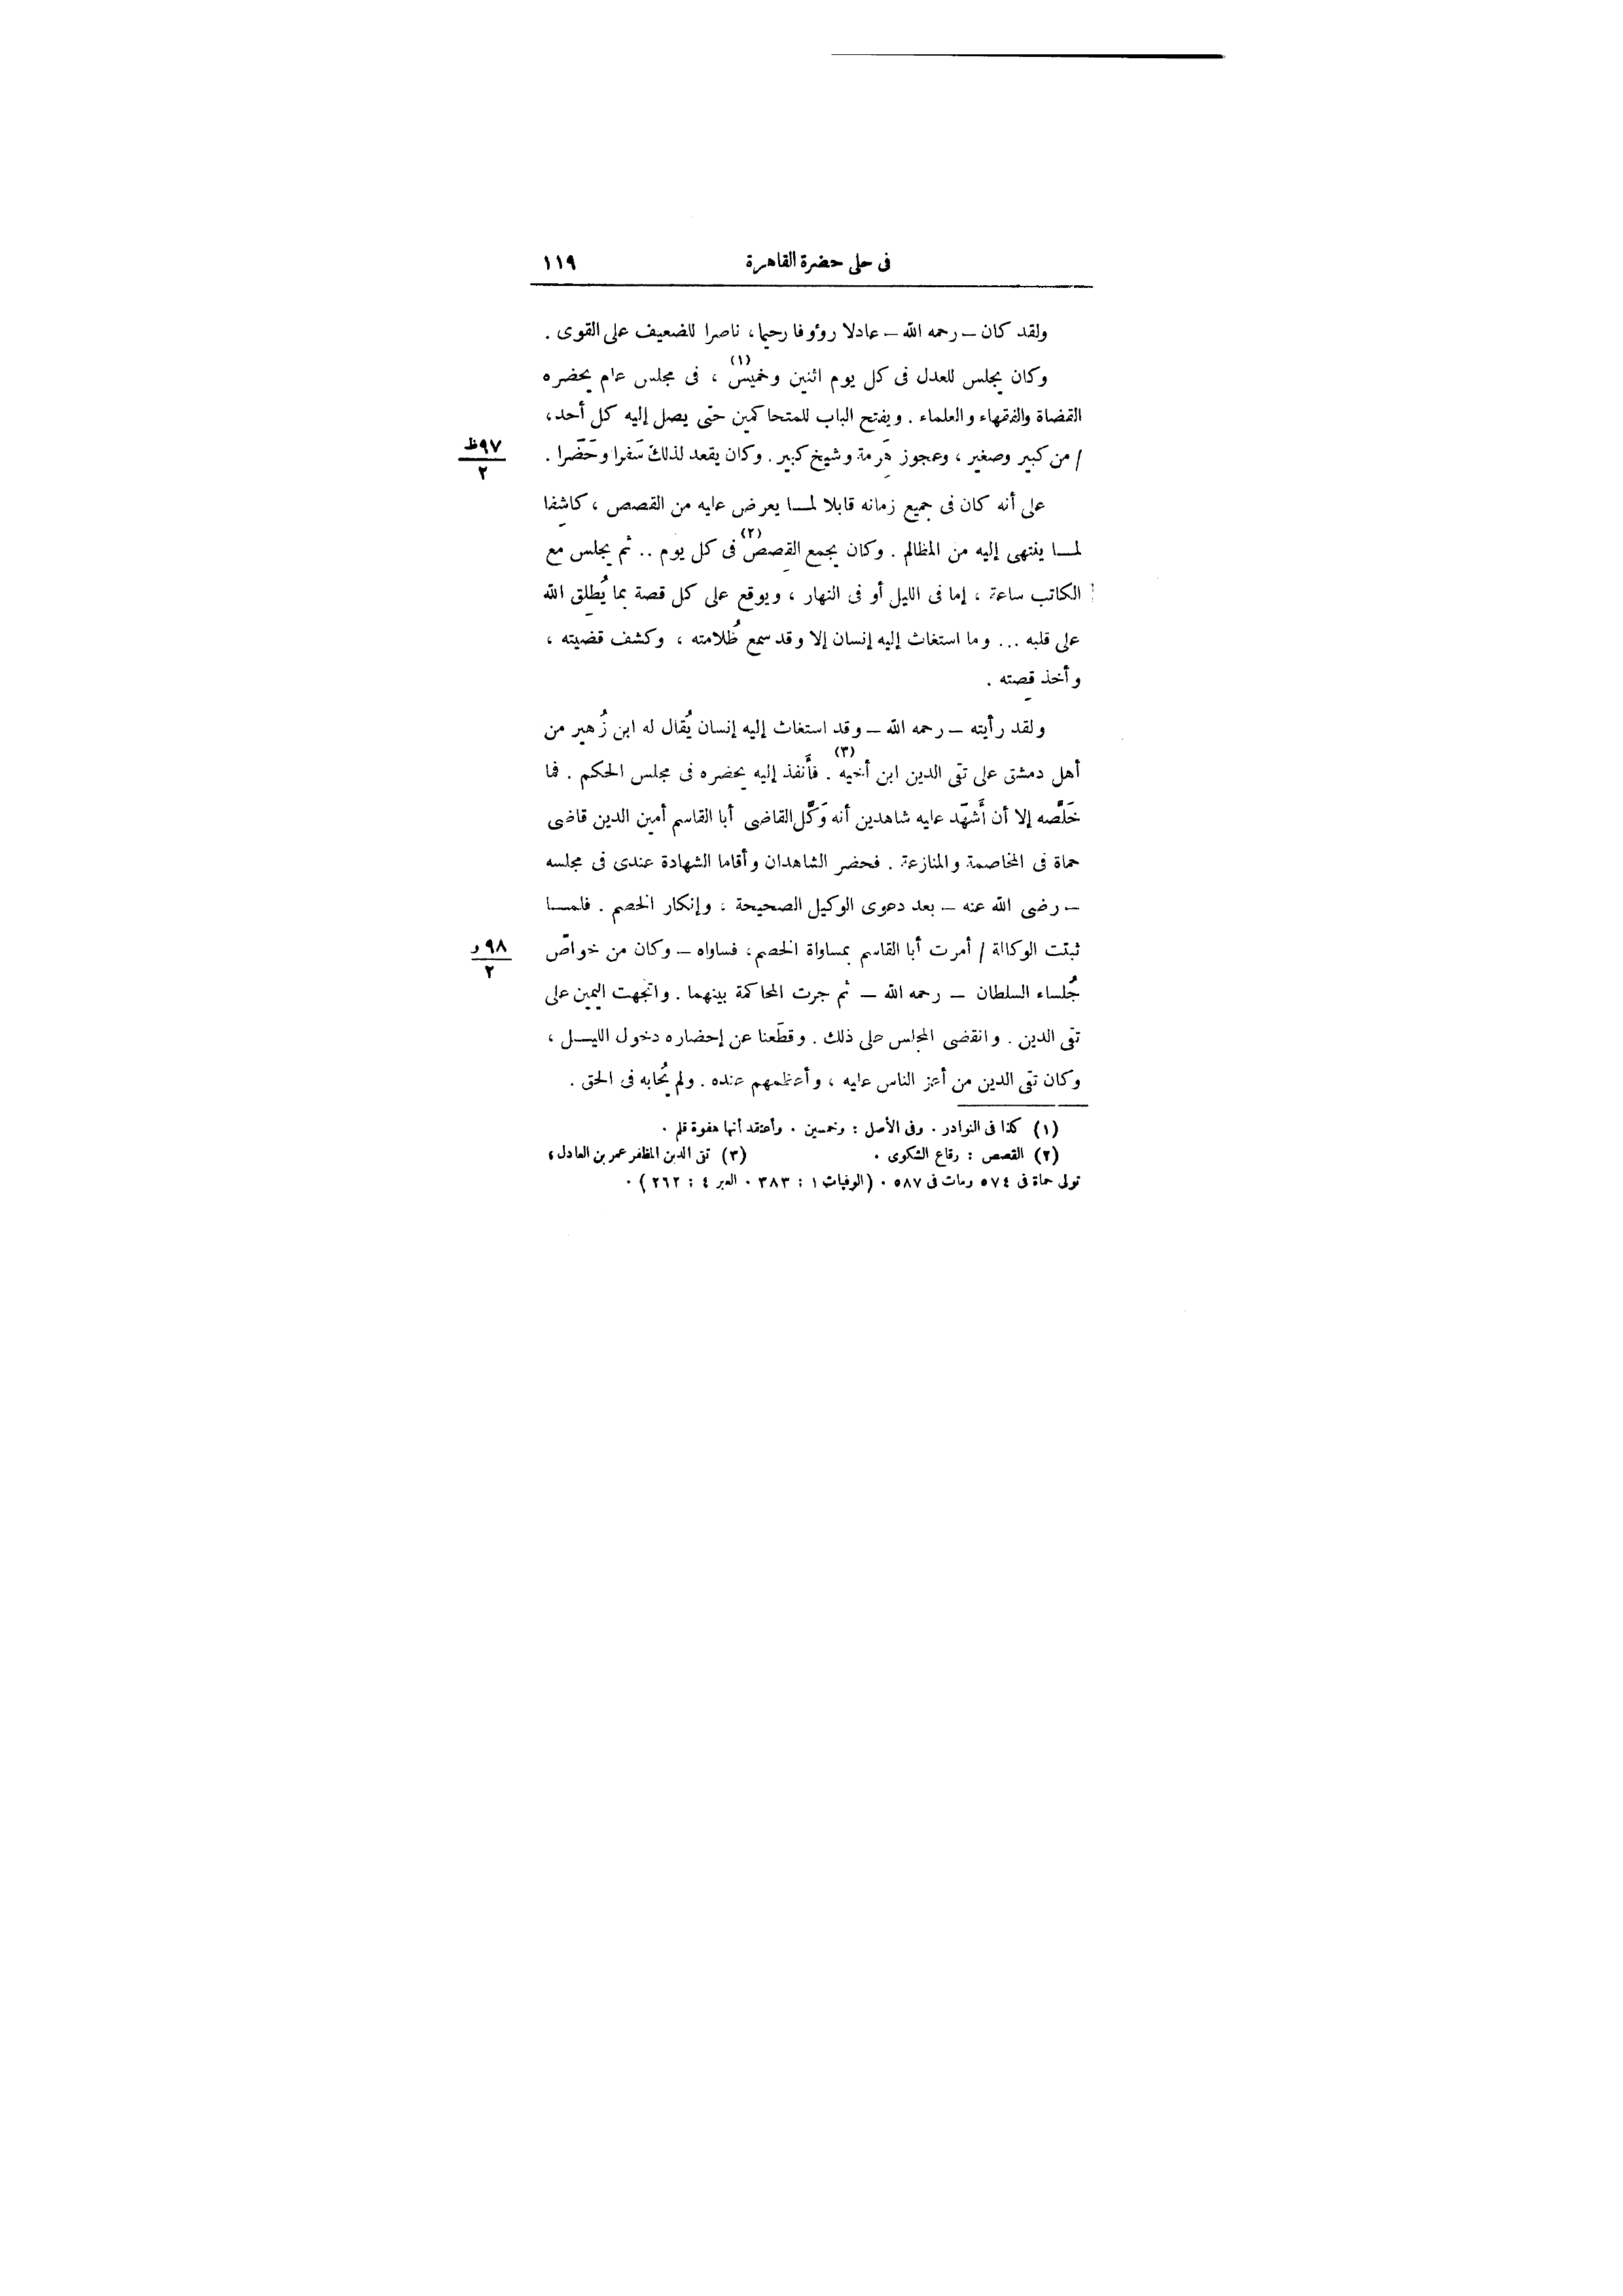 فى حلى حضرة القاهرة ١١٩
ولقد كان — رحمه الله — عادلا رؤوفا رحيما، ناصرا للضعيف على القوى .
وكان يجلس للعدل فى كل يوم اثنين وخميس (١) ، فى مجلس عام يحضره
القضاة والفقهاء والعلماء . ويفتح الباب للمتحاكمين حتى يصل إليه كل أحد،
/ من كبير وصغير ، وعجوز هَرِمة وشيخ كبير . وكان يقعد لذلك سَفَرا وحَضَرا .
٩٧ظ
٢
على أنه كان فى جميع زمانه قابلا لمــا يعرض عليه من القصص ، كاشِفا
لمــا ينتهى إليه من المظالم . وكان يجمع القِصص (٢) فى كل يوم .. ثم يجلس مع
الكاتب ساعة ، إما فى الليل أو فى النهار ، ويوقع على كل قصة بما يُطلِق الله
على قلبه ... وما استغاث إليه إنسان إلا وقد سمع ظُلامته ، وكشف قضيته ،
وأخذ قِصته .
ولقد رأيته — رحمه الله — وقد استغاث إليه إنسان يُقال له ابن زُهير من
أهل دمشق على تقى الدين ابن أخيه (٣) . فأَنفذ إليه يحضره فى مجلس الحكم . فما
خَلَّصه إلا أن أَشهَد عليه شاهدين أنه وَكَّل القاضى أبا القاسم أمين الدين قاضى
حماة فى المخاصمة والمنازعة . فحضر الشاهدان وأقاما الشهادة عندى فى مجلسه
— رضى الله عنه — بعد دعوى الوكيل الصحيحة ، وإنكار الخصم . فلمــا
ثبتت الوكالة / أمرت أبا القاسم بمساواة الخصم، فساواه — وكان من خواصّ
٩٨و
٢
جُلساء السلطان — رحمه الله — ثم جرت المحاكمة بينهما . واتجهت اليمين على
تقى الدين . وانقضى المجلس على ذلك . وقطَعنا عن إحضاره دخول الليــل ،
وكان تقى الدين من أعز الناس عليه ، وأعظمهم عنده . ولم يُحابه فى الحق .
(١) كذا فى النوادر . وفى الأصل : وخمسين . وأعتقد أنها هفوة قلم .
(٢) القصص : رقاع الشكوى . (٣) تقى الدين المظفر عمر بن العادل،
تولى حماة فى ٥٧٤ ومات فى ٥٨٧ . (الوفيات ١ : ٣٨٣ . العبر ٤ : ٢٦٢) .